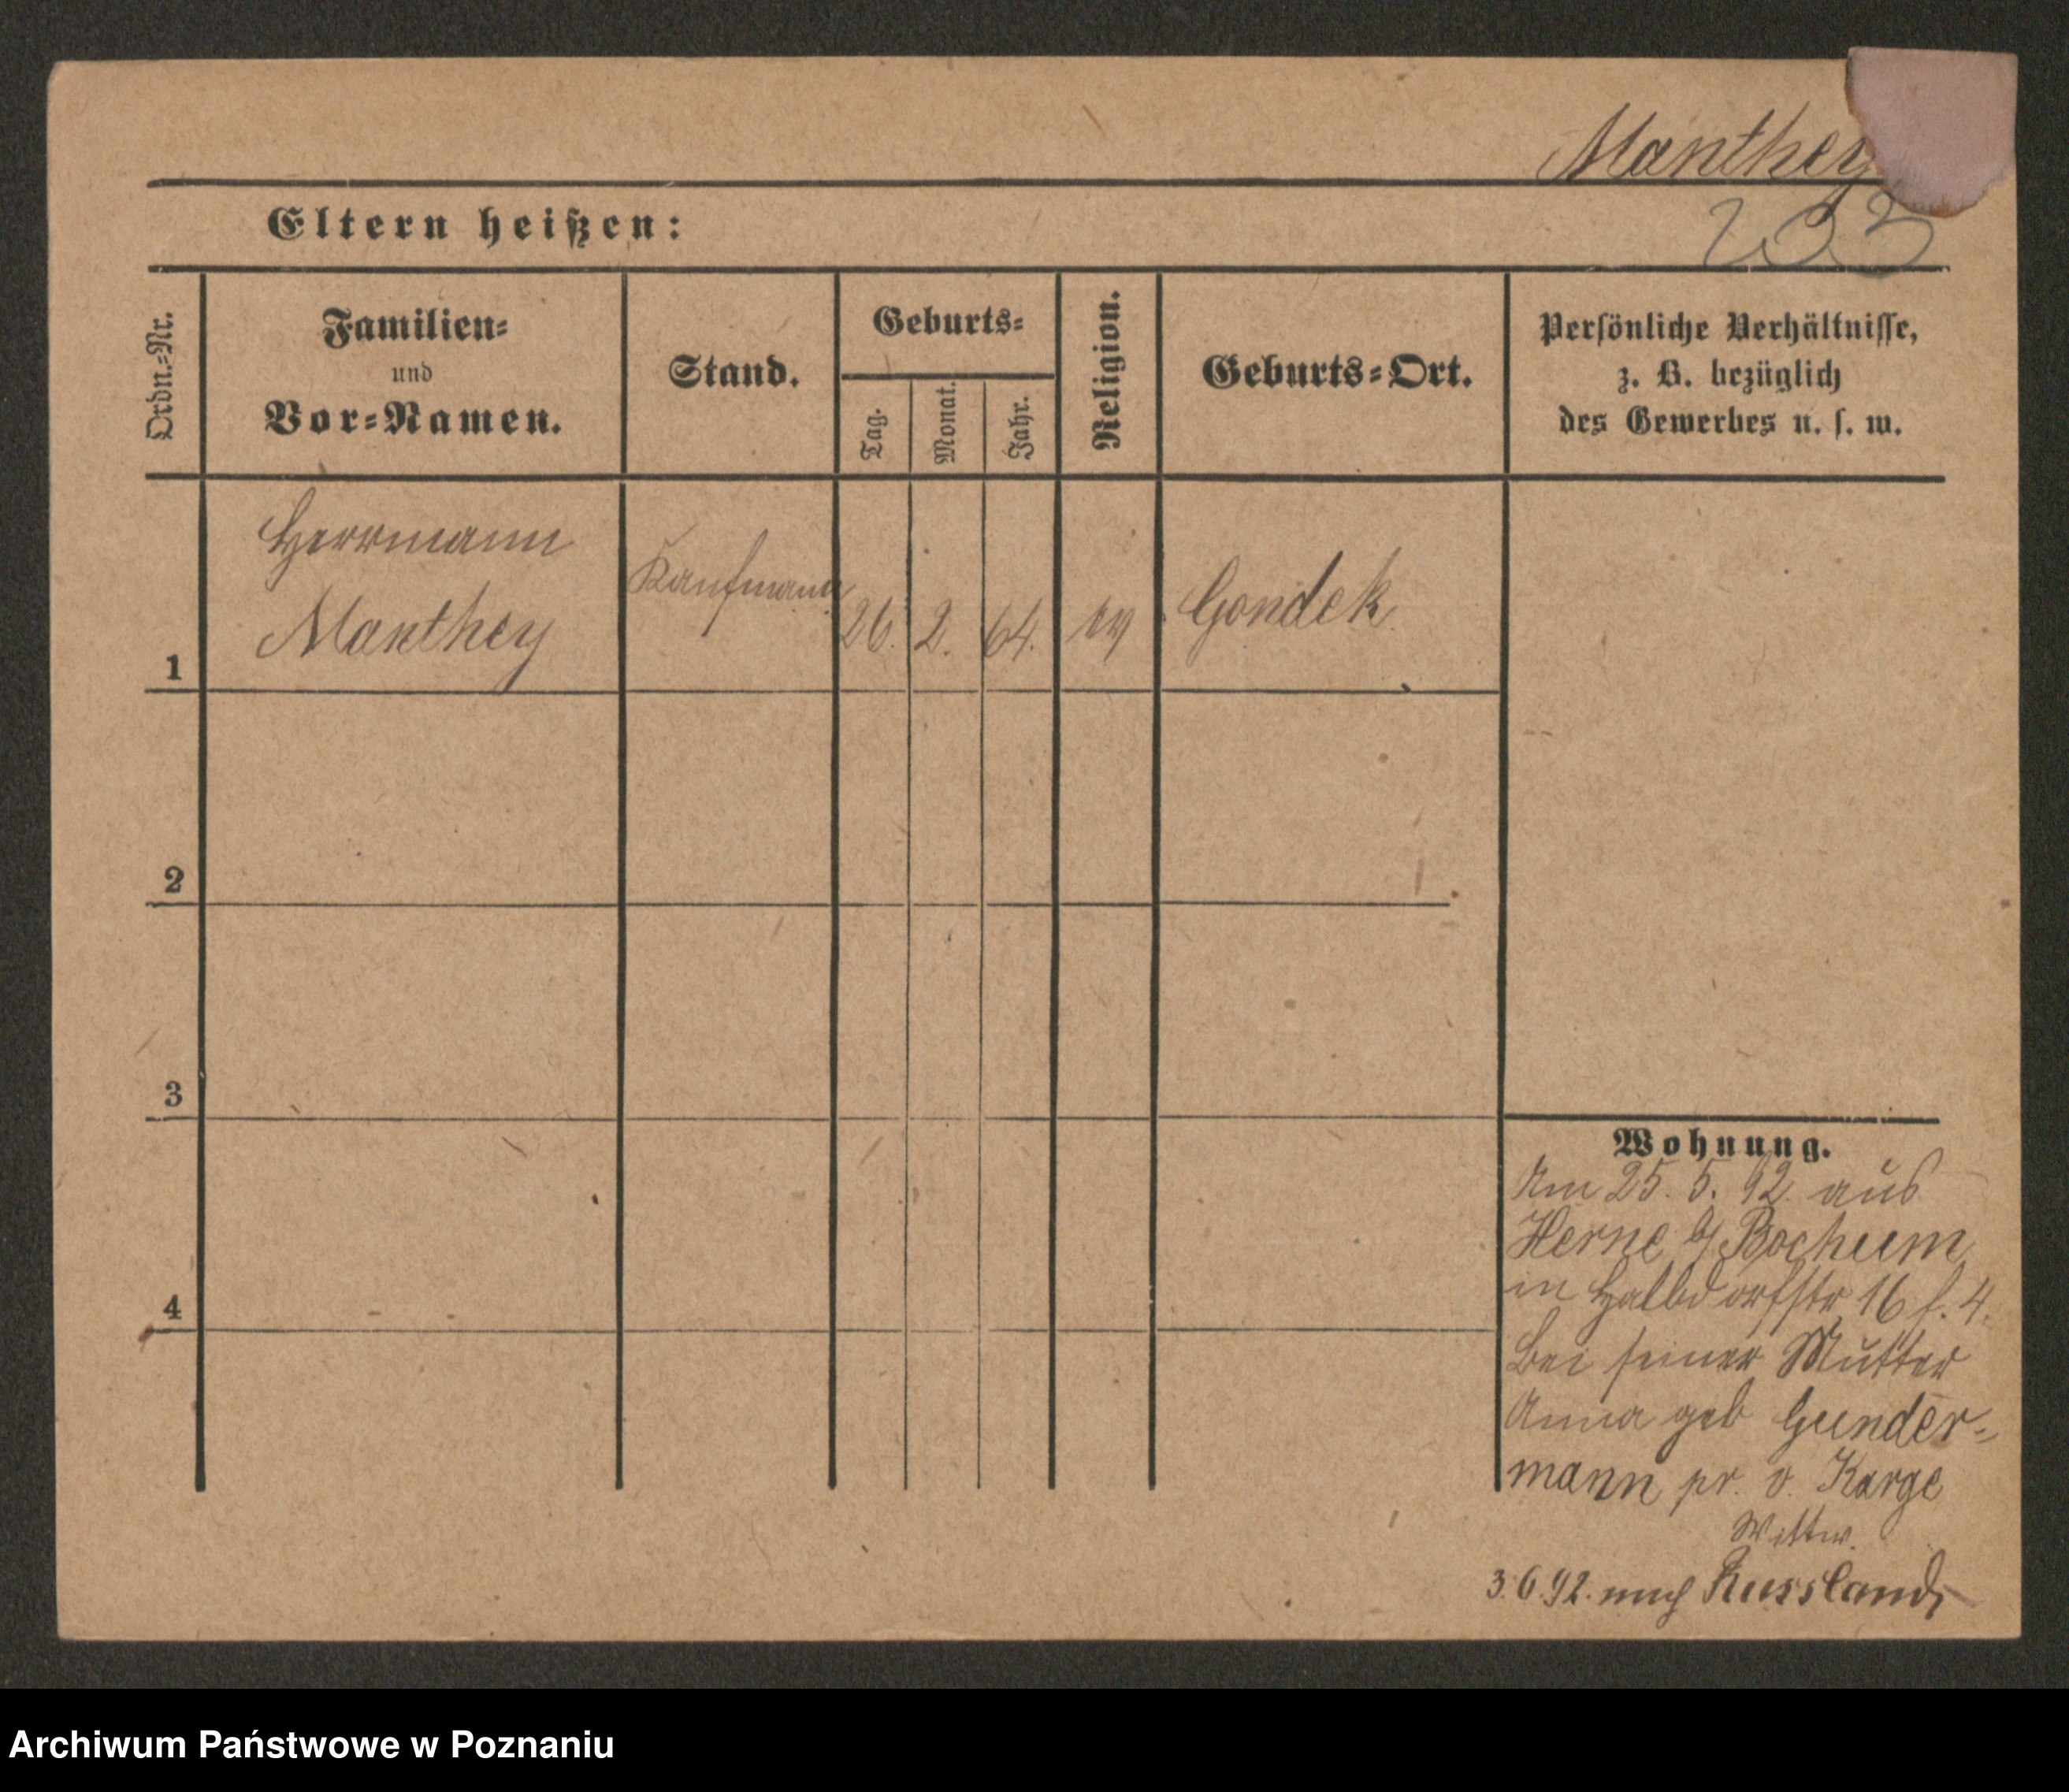 Manthey
233
Eltern heißen:
Ordn.=Nr.
Familien=
und
Vor=Namen.
Stand.
Geburts=
Tag.
Monat.
Jahr.
Religion.
Geburts=Ort.
Persönliche Verhältnisse,
z. B. bezüglich
des Gewerbes u. s. w.
Herrmann
Manthey
Kaufmann
26. 2. 64. ev Gondek
1
2
3
4
Wohnung.
Am 25. 5. 92. aus
Herne b/ Bochum
in Halbdorfstr 16 f. 4.
Bei seiner Mutter
Anna geb Gunder=
mann pr. v. Karge
Wittw.
3.6.92. nach Russland
Archiwum Państwowe w Poznaniu